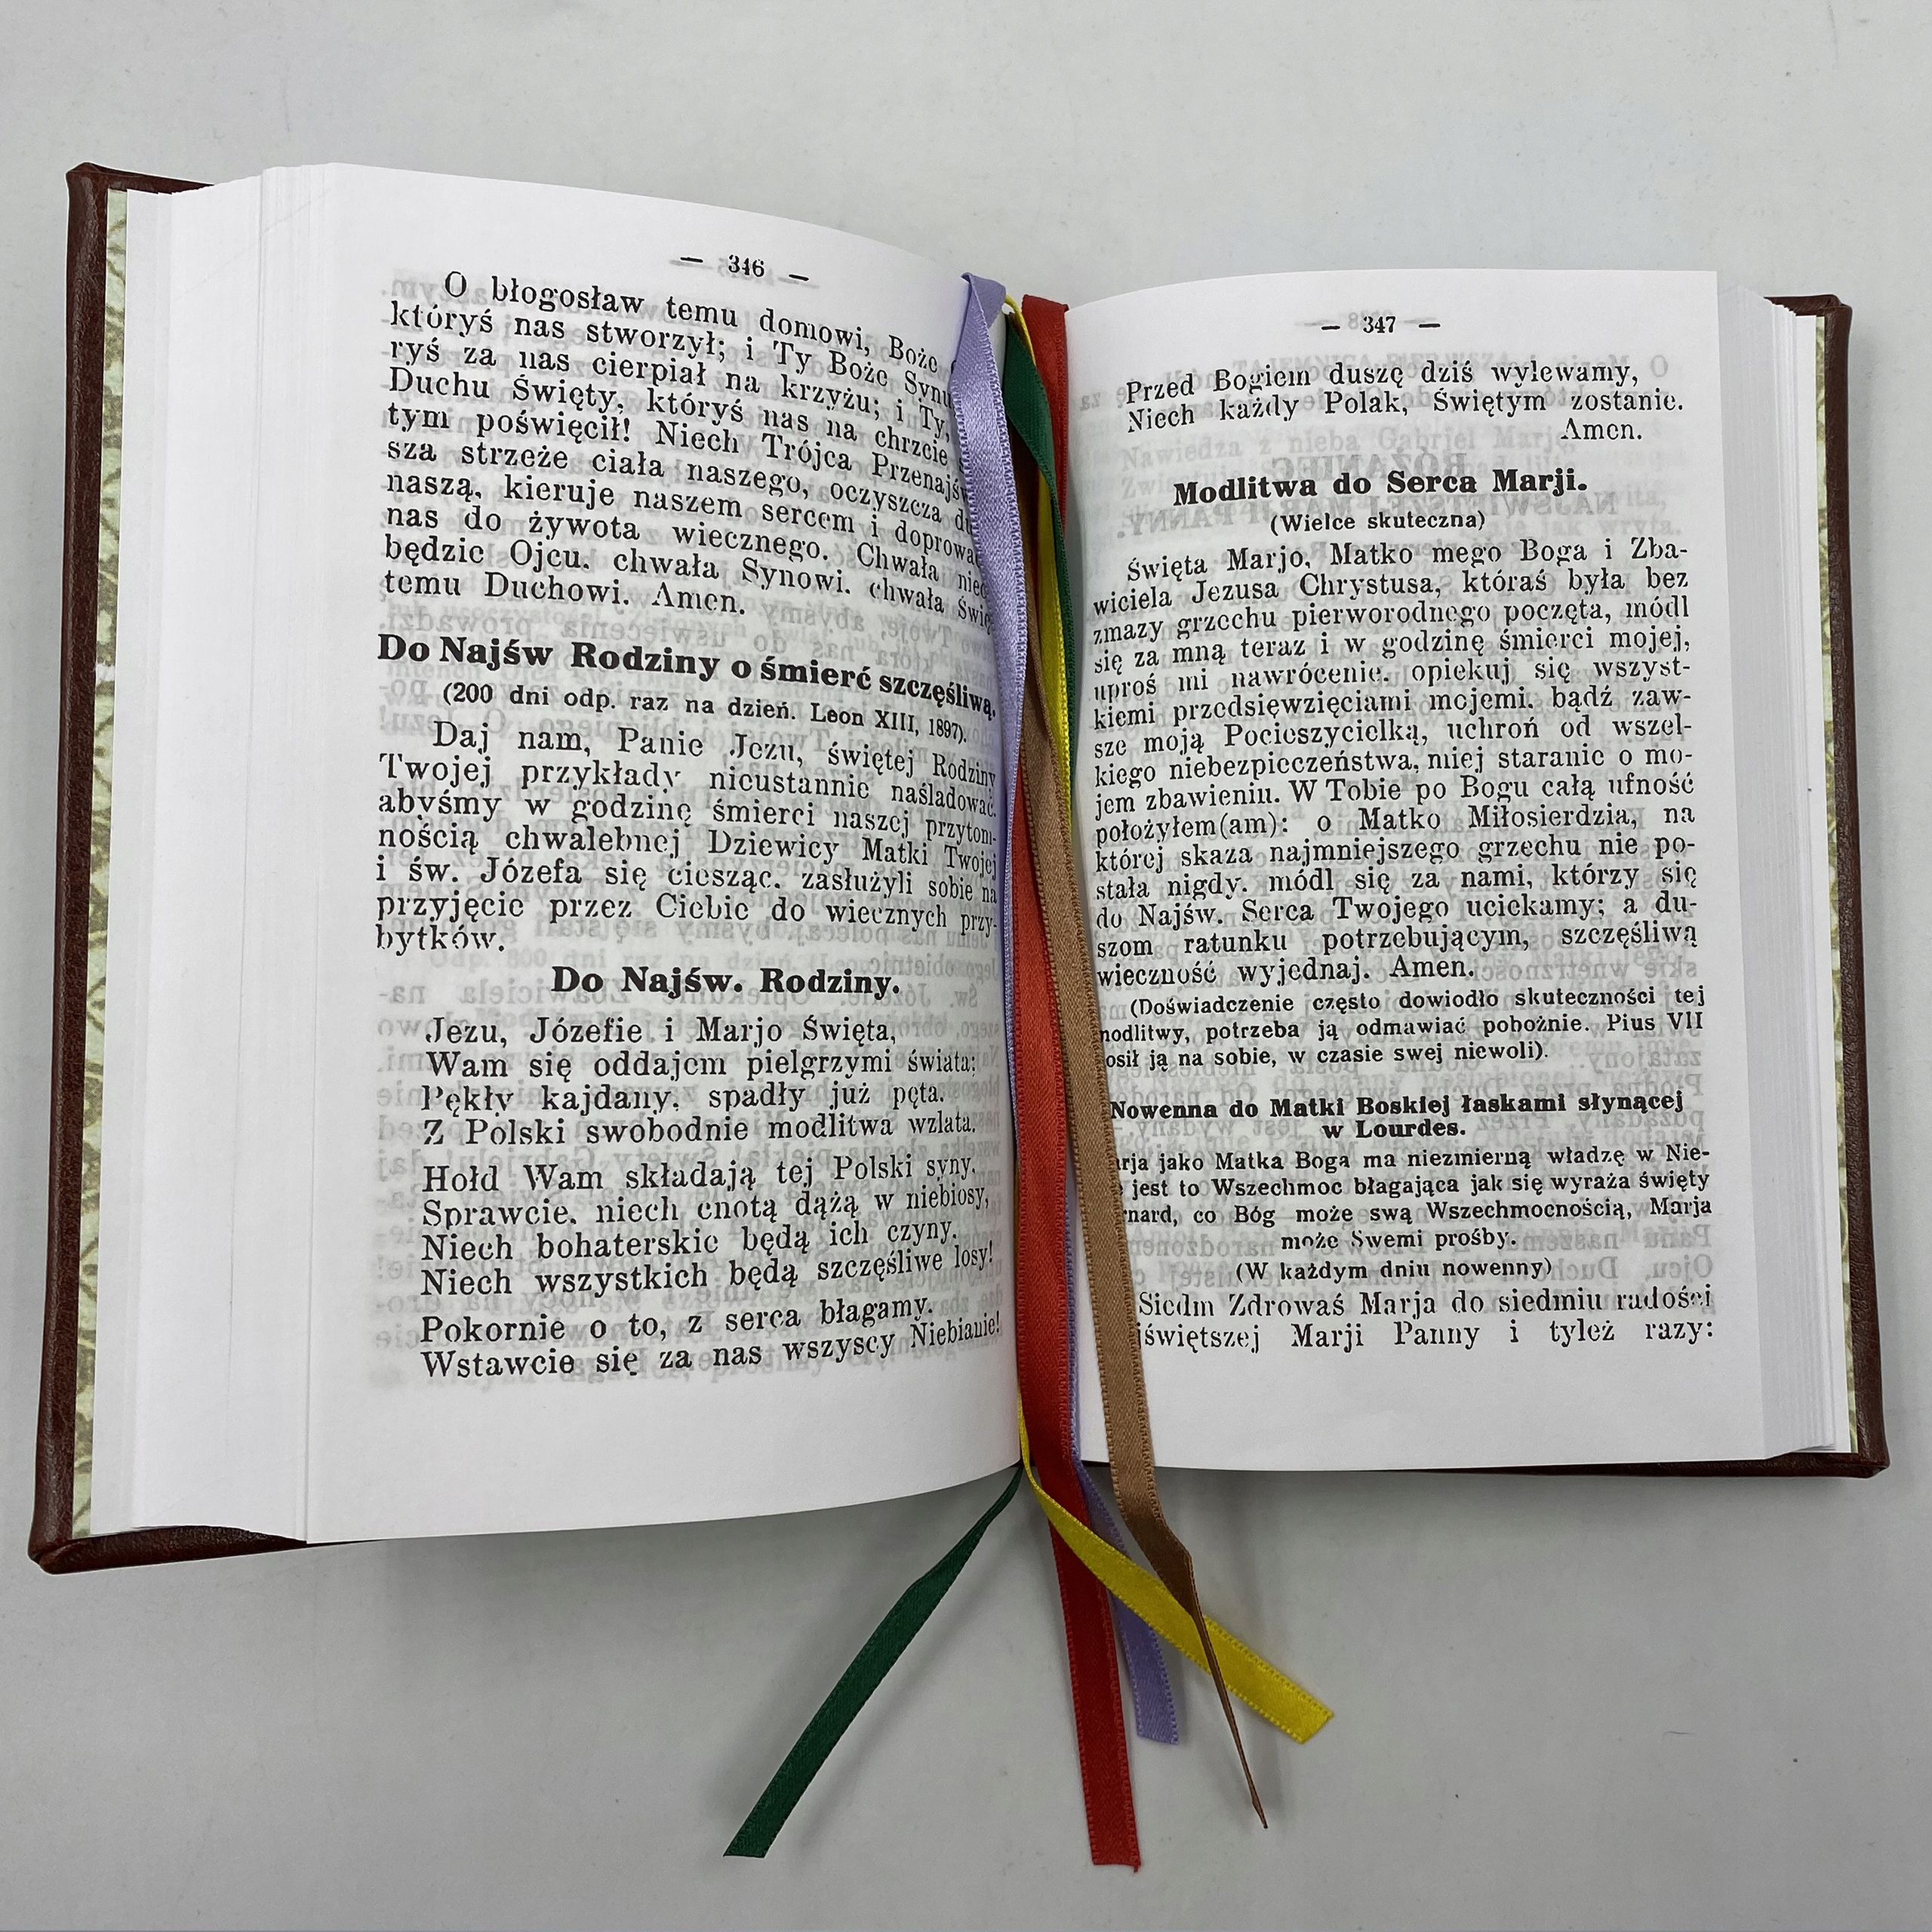 — 346 —
O błogosław temu domowi, Boże
któryś nas stworzył; i Ty Boże Synu
ryś za nas cierpiał na krzyżu; i Ty,
Duchu Święty, któryś nas na chrzcie
tym poświęcił! Niech Trójca Przenajśw
sza strzeże ciała naszego, oczyszcza du
naszą, kieruje naszem sercem i doprowa
nas do żywota wiecznego. Chwała niec
będzie Ojcu, chwała Synowi, chwała Świę-
temu Duchowi. Amen.
Do Najśw Rodziny o śmierć szczęśliwą.
(200 dni odp. raz na dzień. Leon XIII, 1897).
Daj nam, Panie Jezu, świętej Rodziny
Twojej przykłady nieustannie naśladować,
abyśmy w godzinę śmierci naszej przytom-
nością chwalebnej Dziewicy Matki Twojej
i św. Józefa się ciesząc, zasłużyli sobie na
przyjęcie przez Ciebie do wiecznych przy-
bytków.
Do Najśw. Rodziny.
Jezu, Józefie i Marjo Święta,
Wam się oddajem pielgrzymi świata;
Pękły kajdany, spadły już pęta.
Z Polski swobodnie modlitwa wzlata.
Hołd Wam składają tej Polski syny,
Sprawcie, niech cnotą dążą w niebiosy,
Niech bohaterskie będą ich czyny.
Niech wszystkich będą szczęśliwe losy!
Pokornie o to, z serca błagamy.
Wstawcie się za nas wszyscy Niebianie!
— 347 —
Przed Bogiem duszę dziś wylewamy,
Niech każdy Polak, Świętym zostanie.
Amen.
Modlitwa do Serca Marji.
(Wielce skuteczna)
Święta Marjo, Matko mego Boga i Zba-
wiciela Jezusa Chrystusa, któraś była bez
zmazy grzechu pierworodnego poczęta, módl
się za mną teraz i w godzinę śmierci mojej,
uproś mi nawrócenie, opiekuj się wszyst-
kiemi przedsięwzięciami mojemi, bądź zaw-
sze moją Pocieszycielką, uchroń od wszel-
kiego niebezpieczeństwa, miej staranie o mo-
jem zbawieniu. W Tobie po Bogu całą ufność
położyłem(am): o Matko Miłosierdzia, na
której skaza najmniejszego grzechu nie po-
stała nigdy, módl się za nami, którzy się
do Najśw. Serca Twojego uciekamy; a du-
szom ratunku potrzebującym, szczęśliwą
wieczność wyjednaj. Amen.
(Doświadczenie często dowiodło skuteczności tej
nodlitwy, potrzeba ją odmawiać pobożnie. Pius VII
osił ją na sobie, w czasie swej niewoli).
Nowenna do Matki Boskiej łaskami słynącej
w Lourdes.
rja jako Matka Boga ma niezmierną władzę w Nie-
jest to Wszechmoc błagająca jak się wyraża święty
rnard, co Bóg może swą Wszechmocnością, Marja
może Swemi prośby.
(W każdym dniu nowenny)
Siedm Zdrowaś Marja do siedmiu radości
jświętszej Marji Panny i tyleż razy: